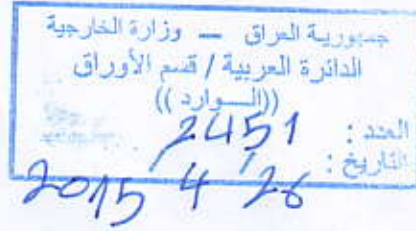 جمهورية العراق — وزارة الخارجية
الدائرة العربية / قسم الأوراق
((الـــوارد))
العدد : 2451
التاريخ : 26 / 4 / 2015